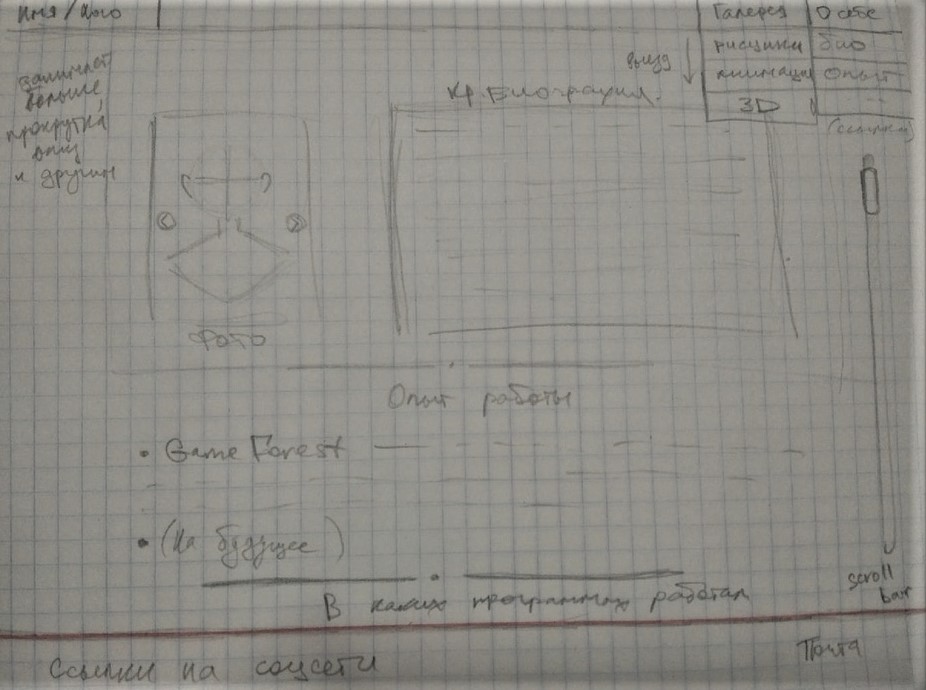 Имя / Лого
Галерея
О себе
рисунки
био
анимация
опыт
3D
(ссылки)
выезд
занимает
больше,
прокрутка
вниз
к другим
Кр. Биография.
Фото
Опыт работы
• GameForest
• (На будущее)
В каких программах работал
scroll
bar
Ссылки на соцсети
Почта